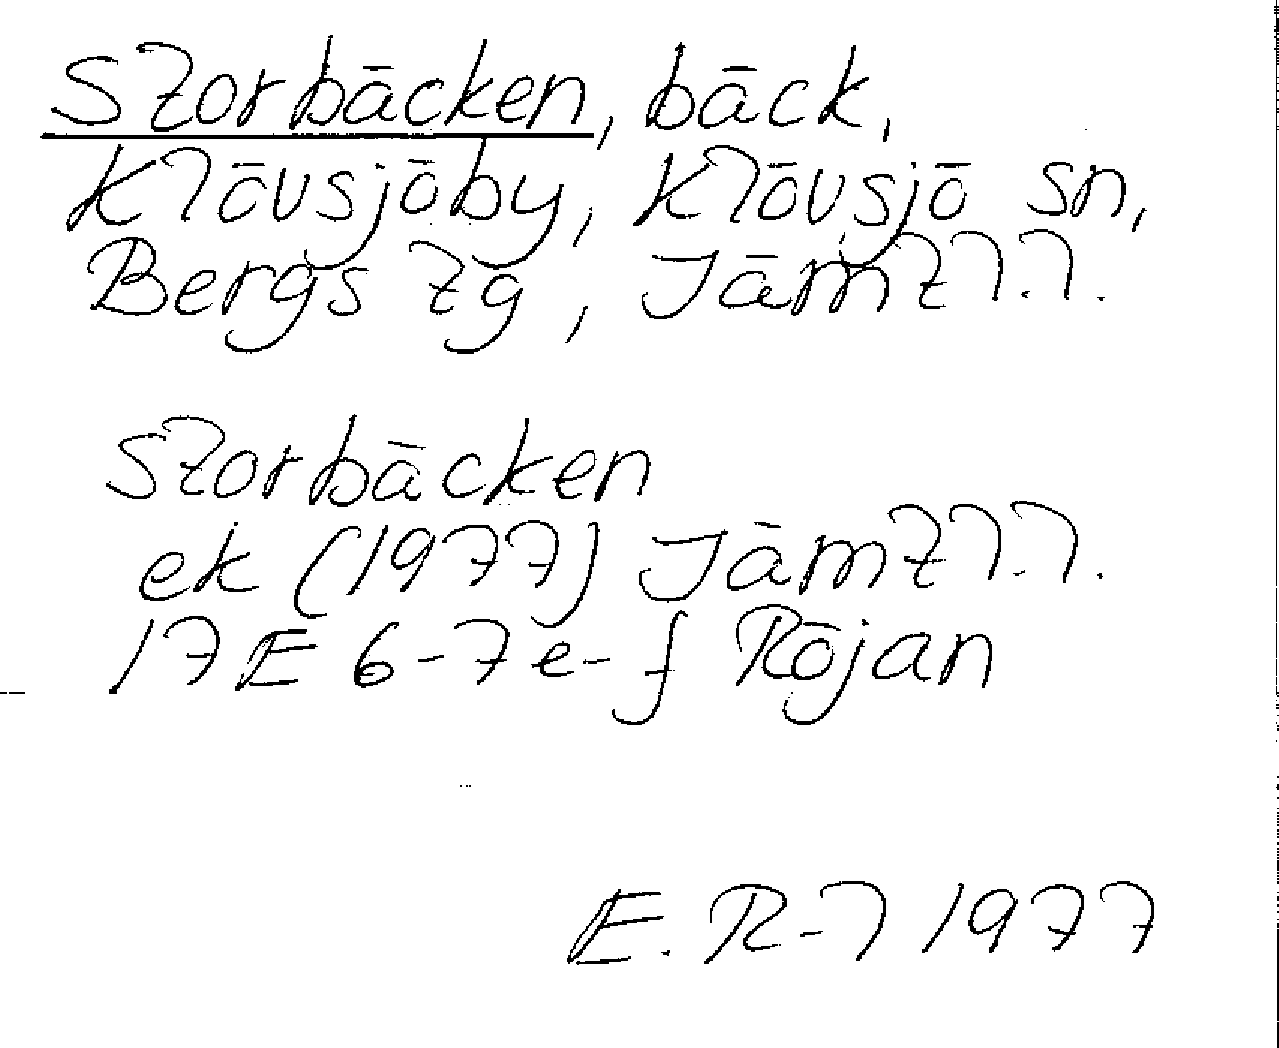 Storbäcken, bäck,
Klövsjöby, Klövsjö sn,
Bergs tg, Jämtl.l.
Storbäcken
ek (1977) Jämtl.l.
17E 6-7e-f Röjan
E. R-l 1977